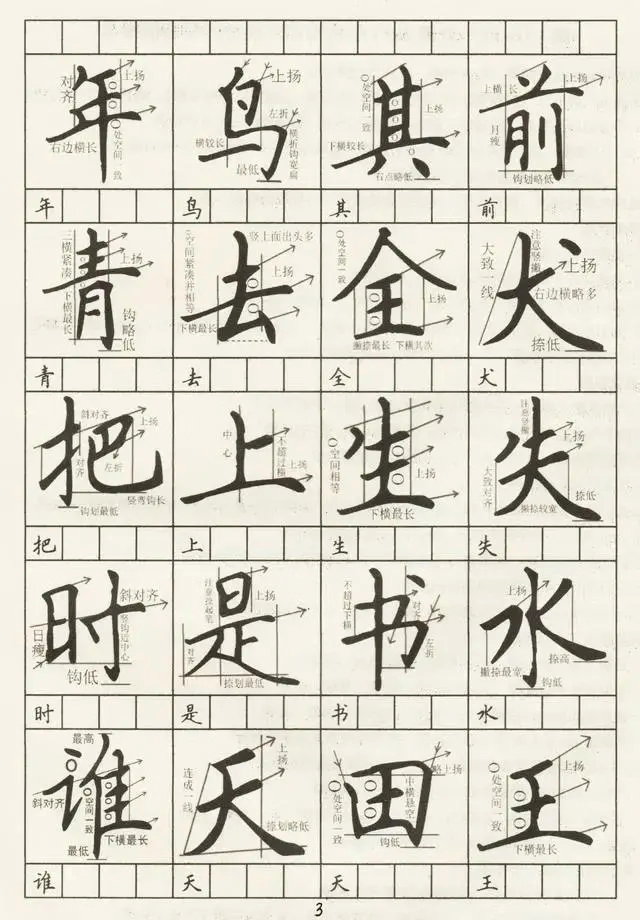 年
对齐
上扬
右边横长
○处空间一致
鸟
上扬
左折
横较长
最低
横折钩宽扁
其
○处空间一致
上扬
下横较长
右点略低
前
上横长
上扬
月瘦
钩划略低
年 鸟 其 前
青
三横紧凑 下横最长
上扬
钩略低
去
○空间紧凑并相等
竖上面出头多
上扬
下横最长
全
○处空间一致
上扬
撇捺最长 下横其次
犬
大致一线
注意竖撇
上扬
右边横略多
捺低
青 去 全 犬
把
斜对齐
上扬
对齐
左折
竖弯钩长
钩划最低
上
中心
不超过横
上扬
生
○空间相等
上扬
下横最长
失
注意竖撇
上扬
大致对齐
捺低
撇捺较宽
把 上 生 失
时
斜对齐
日瘦
竖钩近中心
钩低
是
注意捺起笔
上扬
对齐
捺划最低
书
不超过下横
对齐
左折
水
上扬
捺高
撇捺最宽
钩低
时 是 书 水
谁
最高
斜对齐
○空间一致
最低
下横最长
天
连成一线
上扬
捺划略低
田
○处空间一致
中横悬空
略上扬
钩低
王
○处空间一致
上扬
下横最长
谁 天 天 王
3